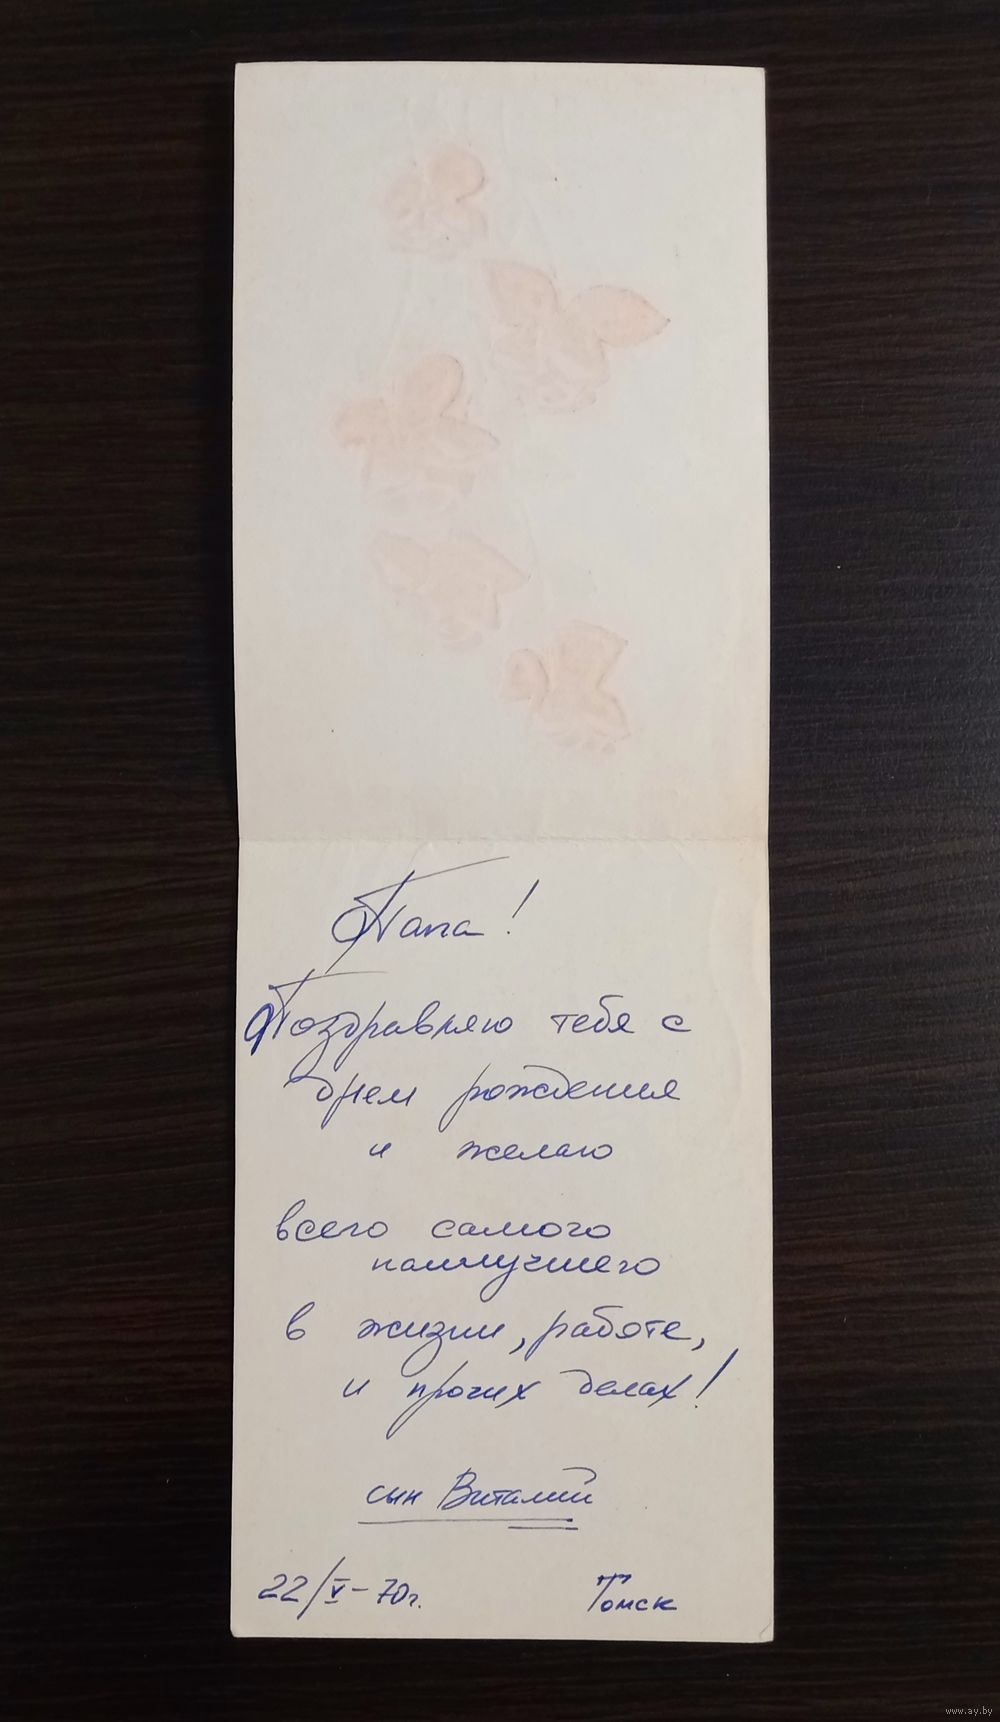 Папа!
Поздравляю тебя с
днем рождения
и желаю
всего самого
наилучшего
в жизни, работе,
и прочих делах!
сын Виталий
22/V-70г. Томск
www.ay.by